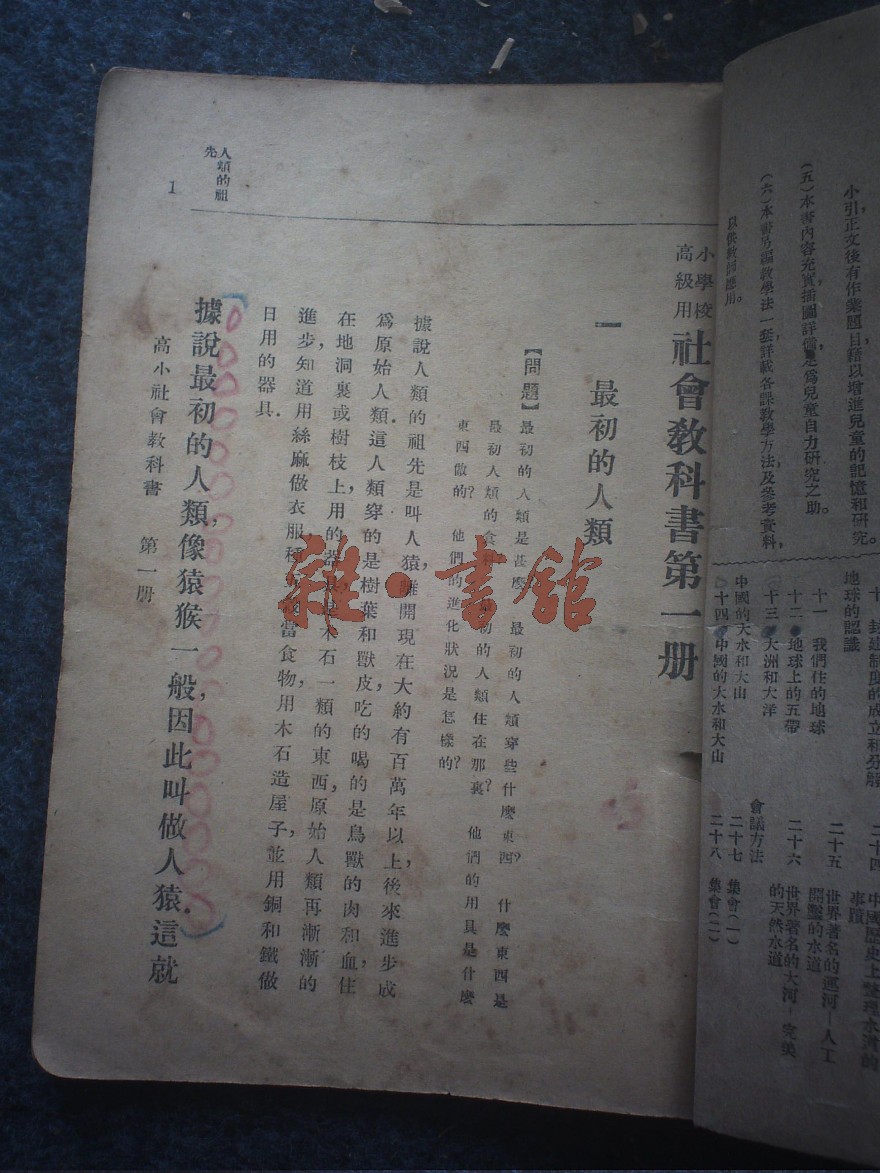 以供敎師應用。
小引正文後有作業題目藉以增進兒童的記憶和研究。
(五)本書內容充實，插圖詳備，足爲兒童自力研究之助。
(六)本書另編敎學法一套，詳載各課敎學方法及參考資料，
地球的認識
十一 我們住的地球
十二 地球上的五帶
十三 大洲和大洋
中國的大水和大山
十四 中國的大水和大山
二十四 中國歷史上整理水道的事蹟
二十五 世界著名的運河—人工開鑿的水道
二十六 世界著名的大河—完美的天然水道
會議方法
二十七 集會(一)
二十八 集會(二)
小學校高級用 社會敎科書第一册
一 最初的人類
【問題】最初的人類是甚麼？ 最初的人類穿些什麼東西？ 什麼東西是
最初人類的食料？ 最初的人類住在那裏？ 他們的用具是什麼
東西做的？ 他們的進化狀況是怎樣的？
據說人類的祖先是叫人猿，離開現在大約有百萬年以上，後來進步成
爲原始人類．這人類穿的是樹葉和獸皮，吃的喝的是鳥獸的肉和血，住
在地洞裏或樹枝上，用的器具是木石一類的東西，原始人類再漸漸的
進步，知道用絲麻做衣服，種 當食物，用木石造屋子，並用銅和鐵做
日用的器具．
據說最初的人類，像猿猴一般，因此叫做人猿．這就
高小社會敎科書 第一册
人類的祖先
1
雜·書館